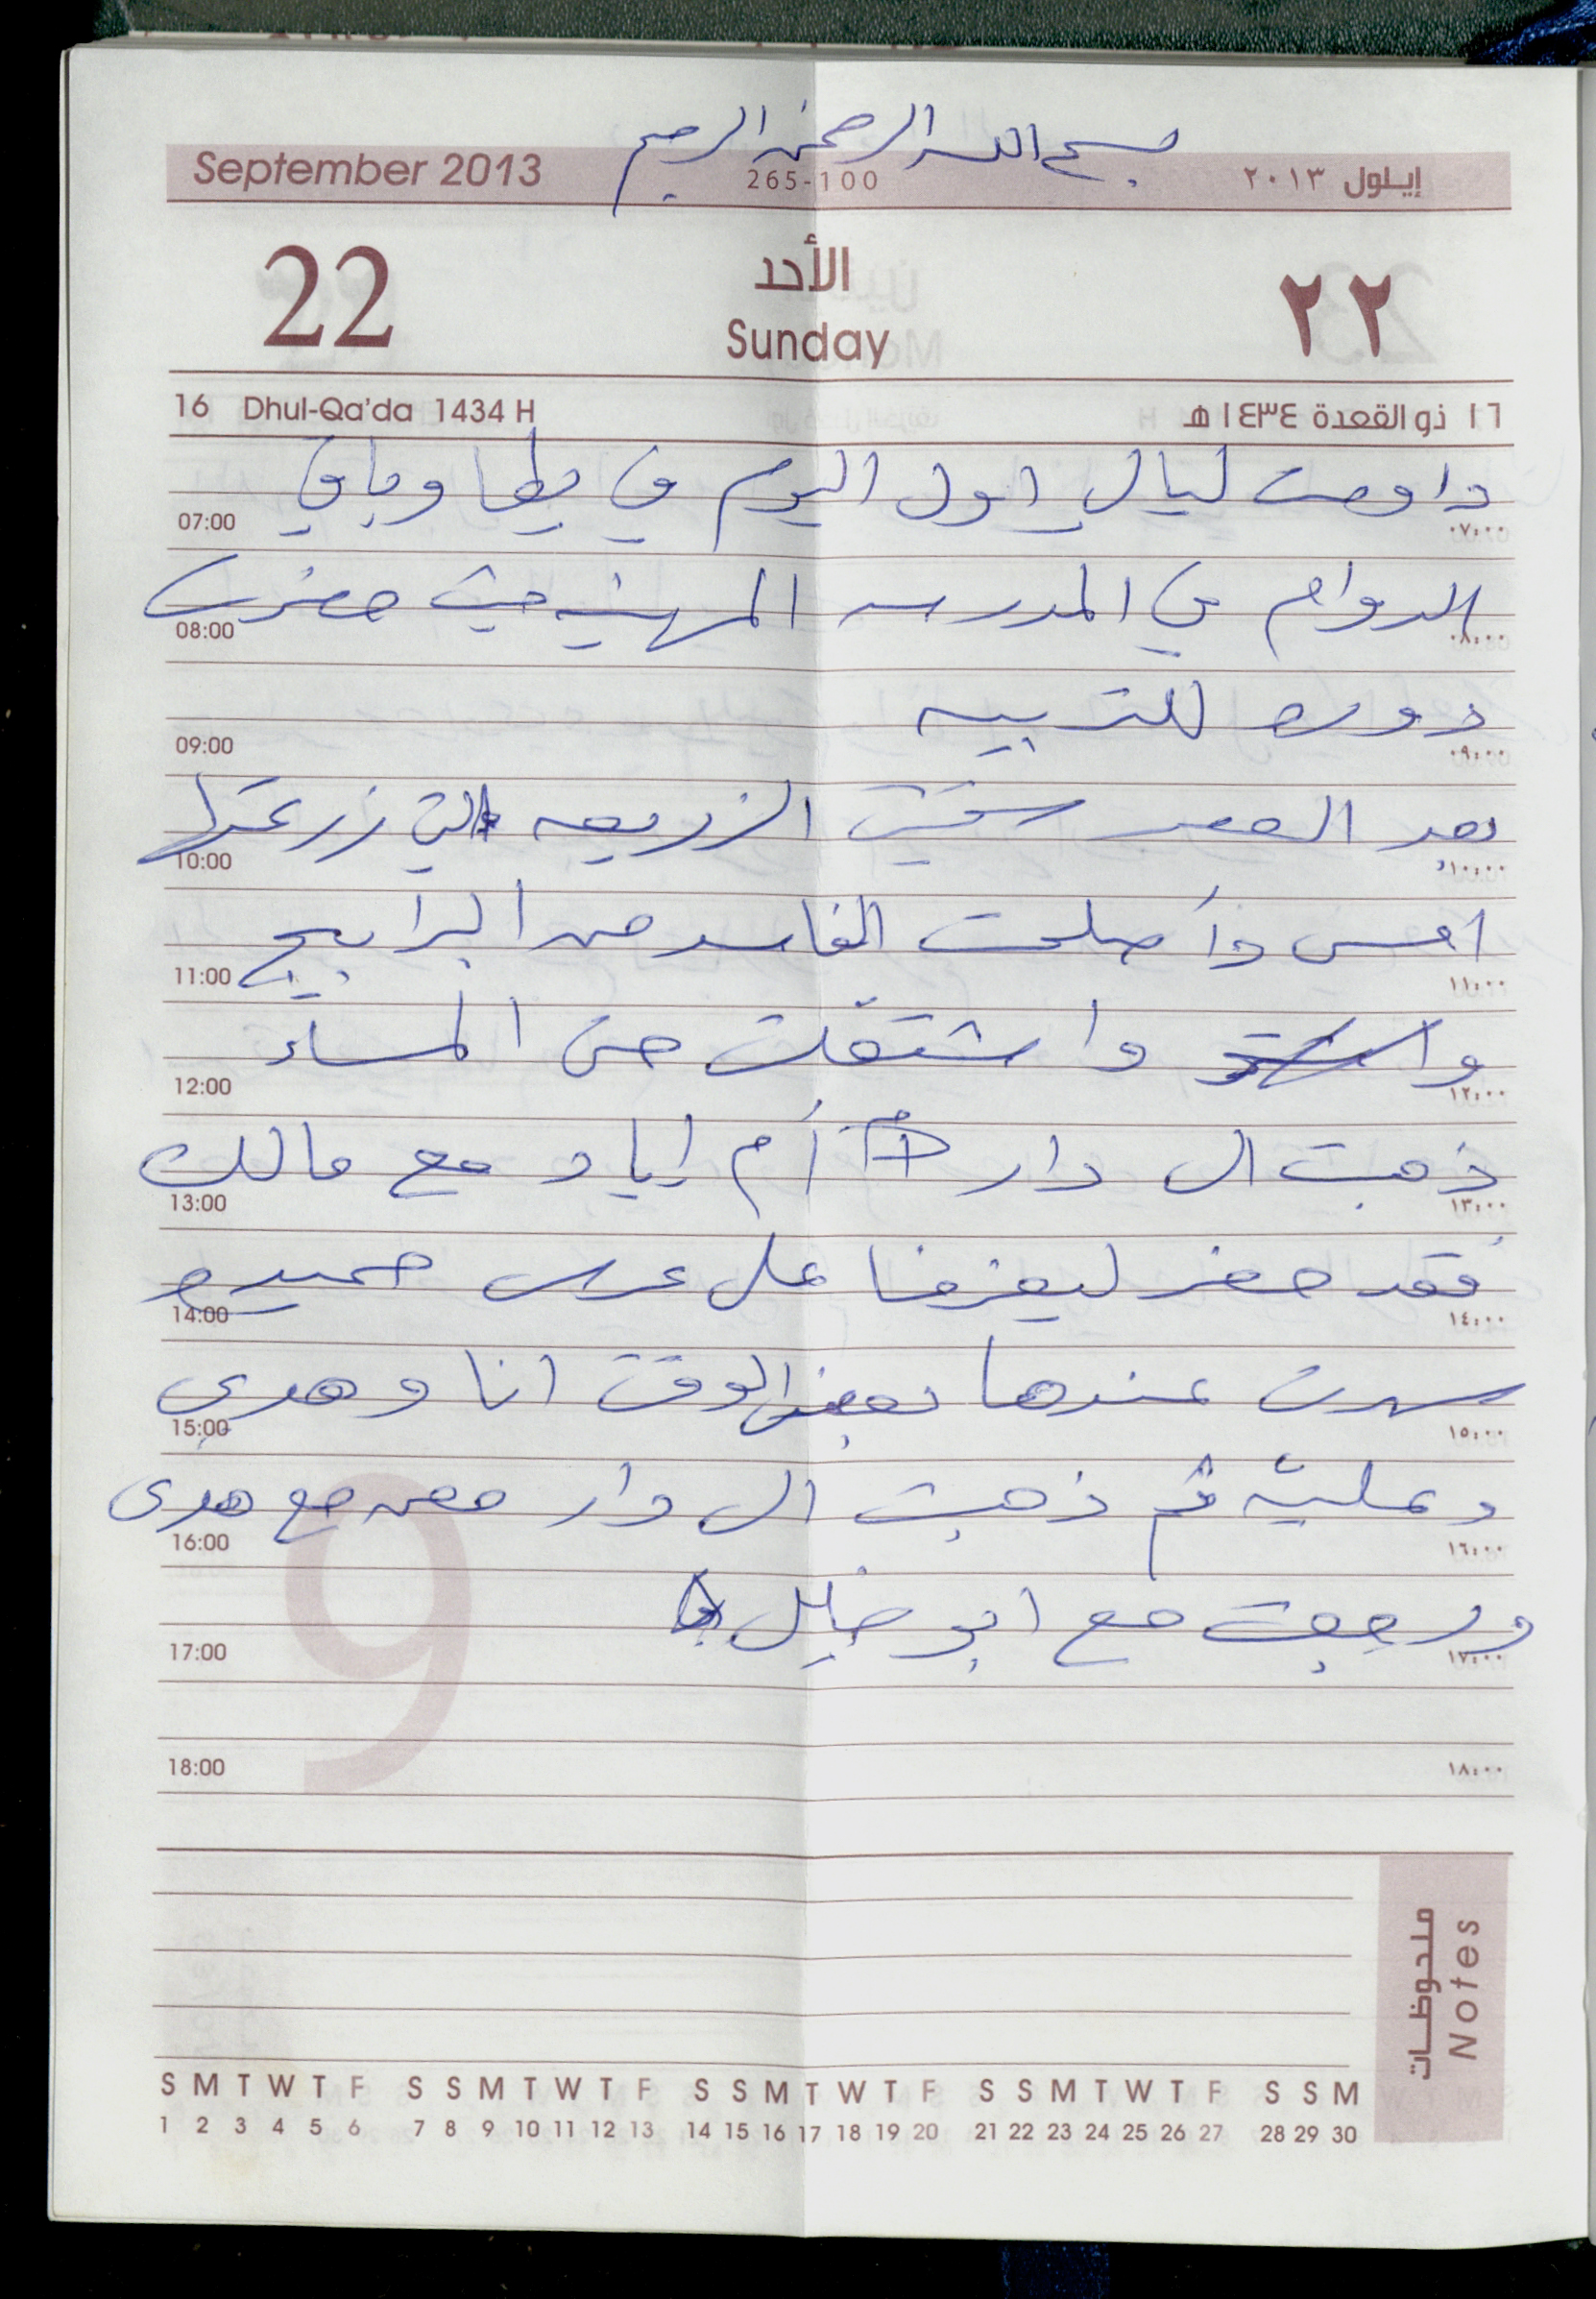 بسم الله الرحمن الرحيم
September 2013 265-100 إيلول ٢٠١٣
22 الأحد ٢٢
Sunday
16 Dhul-Qa'da 1434 H ١٦ ذو القعدة ١٤٣٤ هـ
داومت ليال اول اليوم في يطا وباقي
07:00 ٠٧:٠٠
الدوام في المدرسه المهنيه حيث حضرت
08:00 ٠٨:٠٠
دوره للتربيه
09:00 ٠٩:٠٠
بعد العصر سقيت الزريعه التي زرعتها
10:00 ١٠:٠٠
امس وأصلحت الفاسد من البرابيج
11:00 ١١:٠٠
واشتغلت حتى المساء
12:00 ١٢:٠٠
ذهبت الى دار أم إياد مع مالك
13:00 ١٣:٠٠
فقد حضر ليعزمنا على عرس حميده
14:00 ١٤:٠٠
سهرت عندها بعض الوقت انا وهدى
15:00 ١٥:٠٠
وعليّه ثم ذهبت الى دار معن مع هدى
16:00 ١٦:٠٠
ورجعت مع ابو خليل
17:00 ١٧:٠٠
9
18:00 ١٨:٠٠
ملحوظات
Notes
S M T W T F S S M T W T F S S M T W T F S S M T W T F S S M
1 2 3 4 5 6 7 8 9 10 11 12 13 14 15 16 17 18 19 20 21 22 23 24 25 26 27 28 29 30